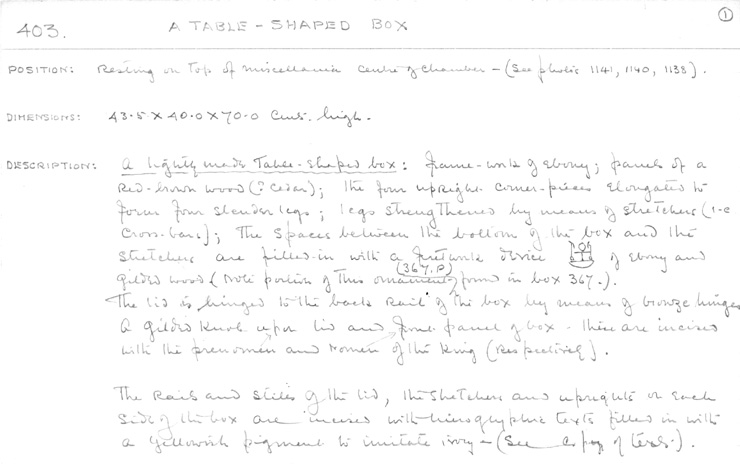 ①
403. A TABLE-SHAPED BOX
POSITION: Resting on top of miscellania centre of chamber - (See photos 1141, 1140, 1138).
DIMENSIONS: 43.5 X 40.0 X 70.0 Cms. high.
DESCRIPTION: A lightly made Table-shaped box: frame-work of ebony; panels of a
red-brown wood (? cedar); the four upright corner-pieces elongated to
form four slender legs; legs strengthened by means of stretchers (i-e
cross-bars); the spaces between the bottom of the box and the
stretchers are filled-in with a fretwork device of ebony and
gilded wood (Note portion of this ornament (367.P) found in box 367.).
The lid is hinged to the back rail of the box by means of bronze hinges
A gilded knob upon lid and front panel of box - these are incised
with the prenomen and nomen of the King (respectively).
The rails and stiles of the lid, the stretchers and uprights on each
side of the box are incised with hieroglyphic texts filled in with
a yellowish pigment to imitate ivory - (See copy of texts.).